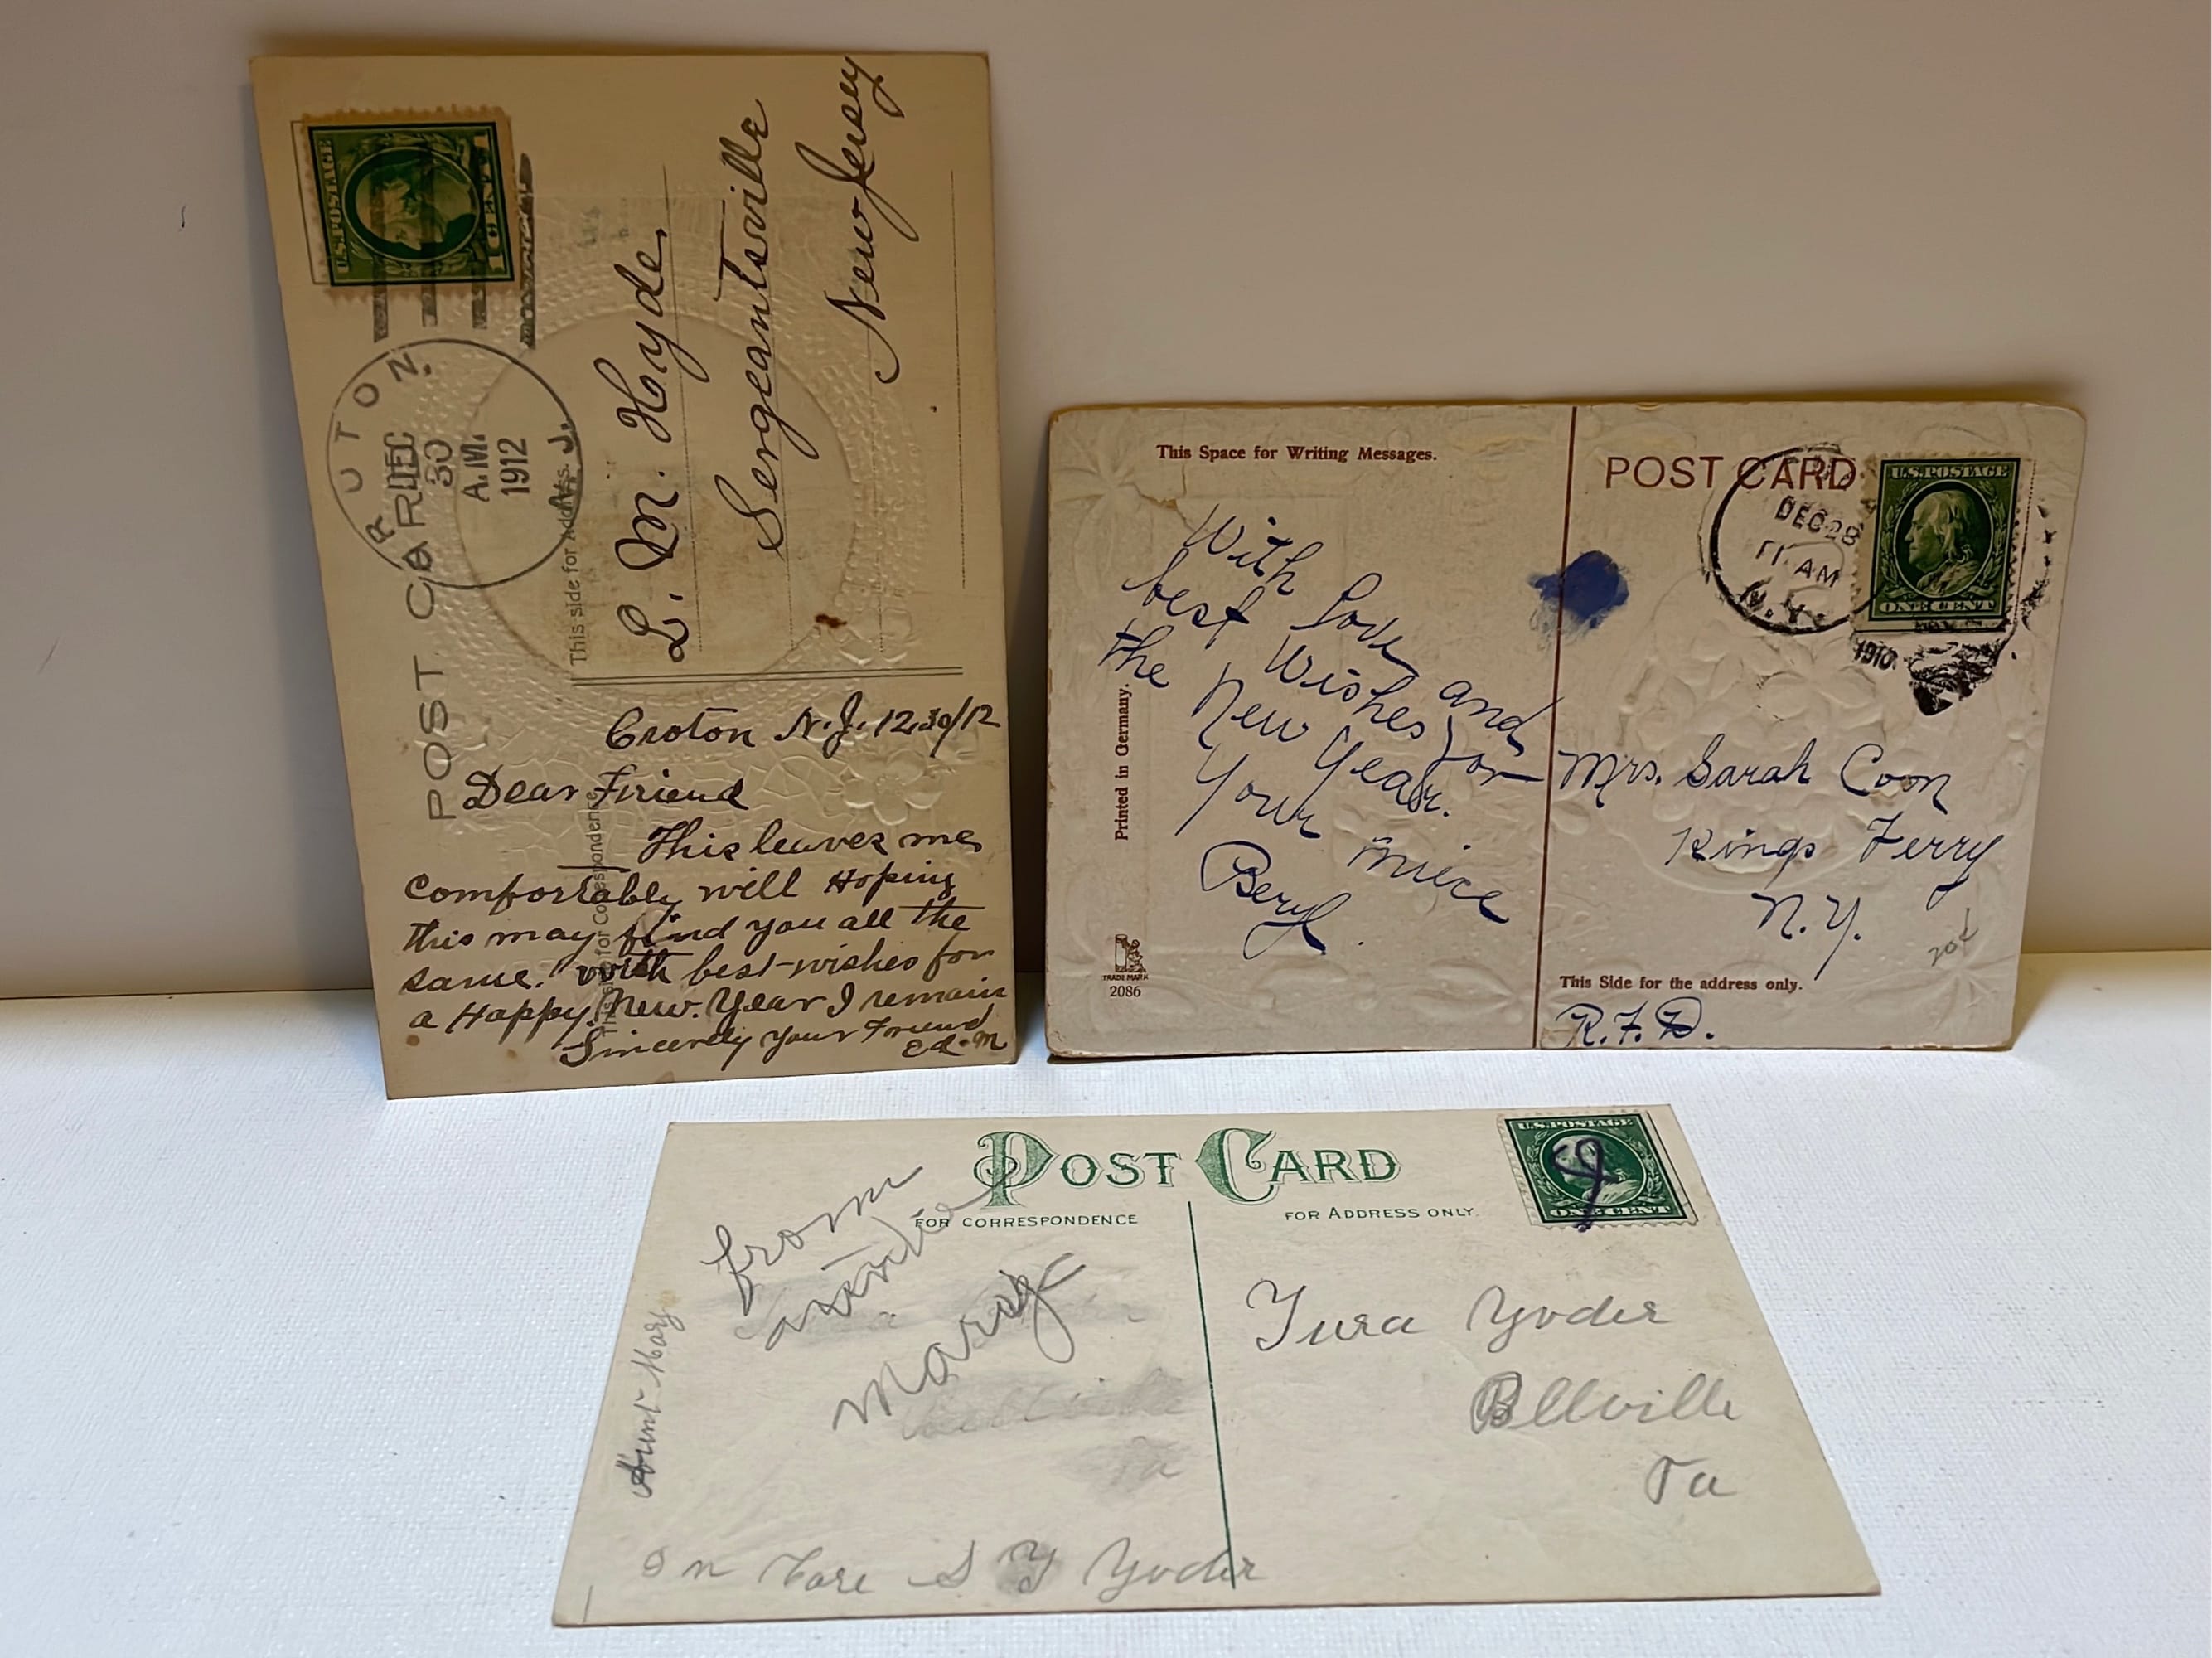 U.S. POSTAGE
1 CENT
CROTON
DEC
30
A.M.
1912
N.J.
POST CARD
This side for Address.
L. M. Hyde,
Sergeantsville
New Jersey
This side for Correspondence
Croton N.J. 12,30/12
Dear Friend
This leaves me,
comfortably, will Hoping
this may find you all the
same. with best-wishes for
a Happy. New. Year I remain
Sincerely your Friend
Ed. M
This Space for Writing Messages.
POST CARD
DEC 28
11 AM
N.Y.
1910
U.S. POSTAGE
ONE CENT
With Love and
best Wishes for
the New Year.
Your niece
Beryl.
Printed in Germany.
TRADE MARK
2086
Mrs. Sarah Coon
Kings Ferry
N.Y.
20¢
This Side for the address only.
R.F.D.
POST CARD
FOR CORRESPONDENCE
FOR ADDRESS ONLY.
U.S. POSTAGE
ONE CENT
from
auntie
Mary
Aunt Mary
Yoder
Bellville
Pa
Bellville
Pa
In Care S Y Yoder